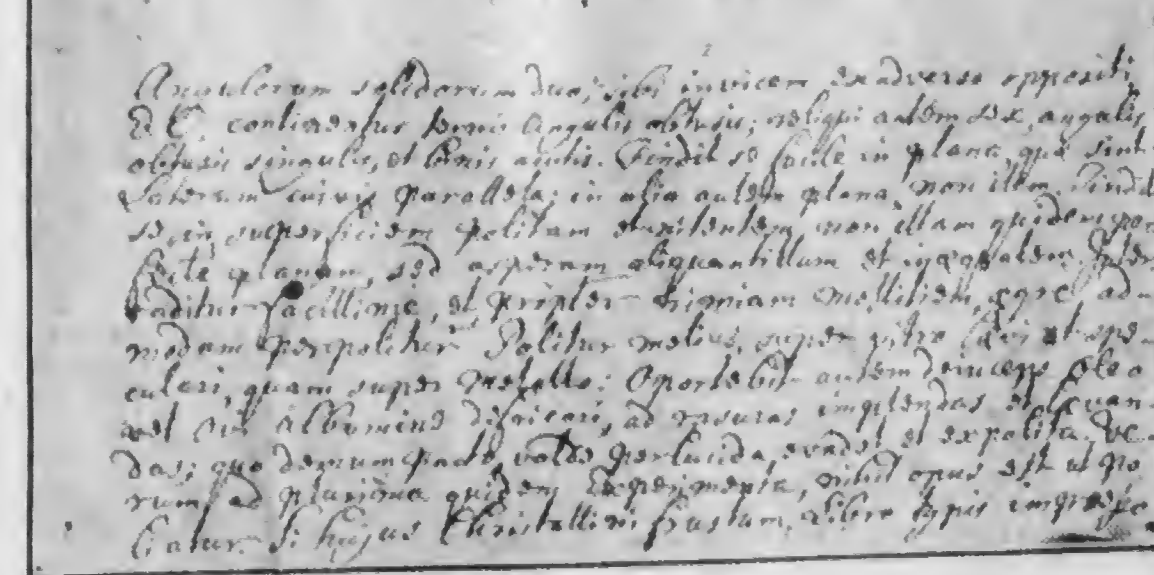 2
Angulorum solidorum duo, sibi invicem ex adverso oppositi
& C, continentur ternis angulis obtusis; reliqui autem sex, angulis
obtusis singulis, et binis acutis. Findit se facile in plana, quæ sint
laterum parallela; in alia autem plana, non item. Findit
se in superficiem politam et nitentem, non illam quidem per-
fecte planam, sed asperam aliquantillum et inæqualem. Inter
raditur facillime, et propter nimiam mollitiem, ægre ad-
modum perpolitur. Politur melius, super vitro spe-
culari, quam super metallo: Oportebit autem deinceps oleo
vel ovi albumine ad rasuras implendas et
das; quo demum pacto valde perlucida, evadet et expolita. Ve-
rum ad plurima quidem Experimenta, nihil opus est ut po-
liatur. Si hujus Christallini frustum, libro typis impresso